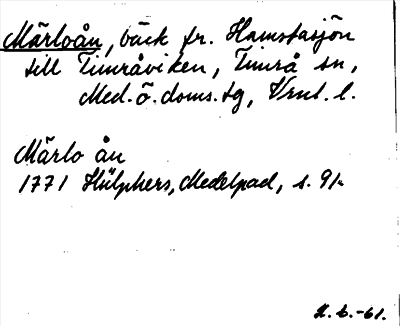 Märloån, bäck fr. Hamstasjön
till Timråviken, Timrå sn,
Med. ö. doms. tg, Vrnl. l.
Märlo ån
1771 Hülphers, Medelpad, s. 91.
-61.